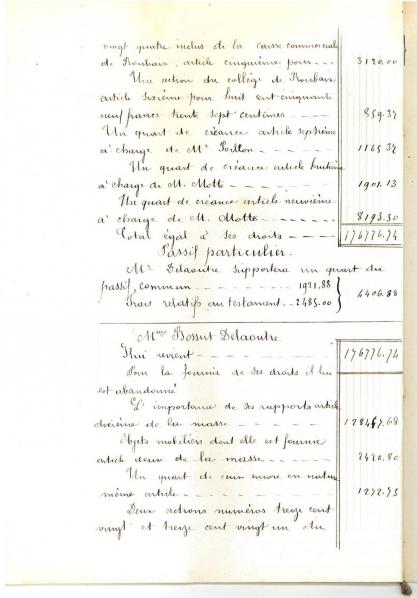 vingt quatre inclus de la Caisse commerciale
de Roubaix, article cinquième pour - - - 3120.00
Une action du collège de Roubaix
article sixième pour huit cent cinquante
neuf francs trente sept centimes - - - 859.37
Un quart de créance article septième
à charge de Mr Pollon - - - - 1165.37
Un quart de créance article huitième
à charge de M. Motte - - - - 1901.13
Un quart de créance article neuvième
à charge de M. Motte - - - - 8193.50
Total égal à ses droits - - - - 176776.74
Passif particulier.
Mr Delaoutre supportera un quart du
passif commun - - - - 1921.88
Frais relatifs au testament - - 2485.00 } 4406.88
Mme Bossut Delaoutre
Il lui revient - - - - - - 176776.74
Pour la fournir de ses droits il lui
est abandonné
L'importance de ses rapports article
dixième de la masse - - - - 128467.68
Objets mobiliers dont elle est fournie
article deux de la masse - - - - 2420.80
Un quart de ceux encore en nature
même article - - - - - - 1272.75
Deux actions numéros treize cent
vingt et treize cent vingt un du